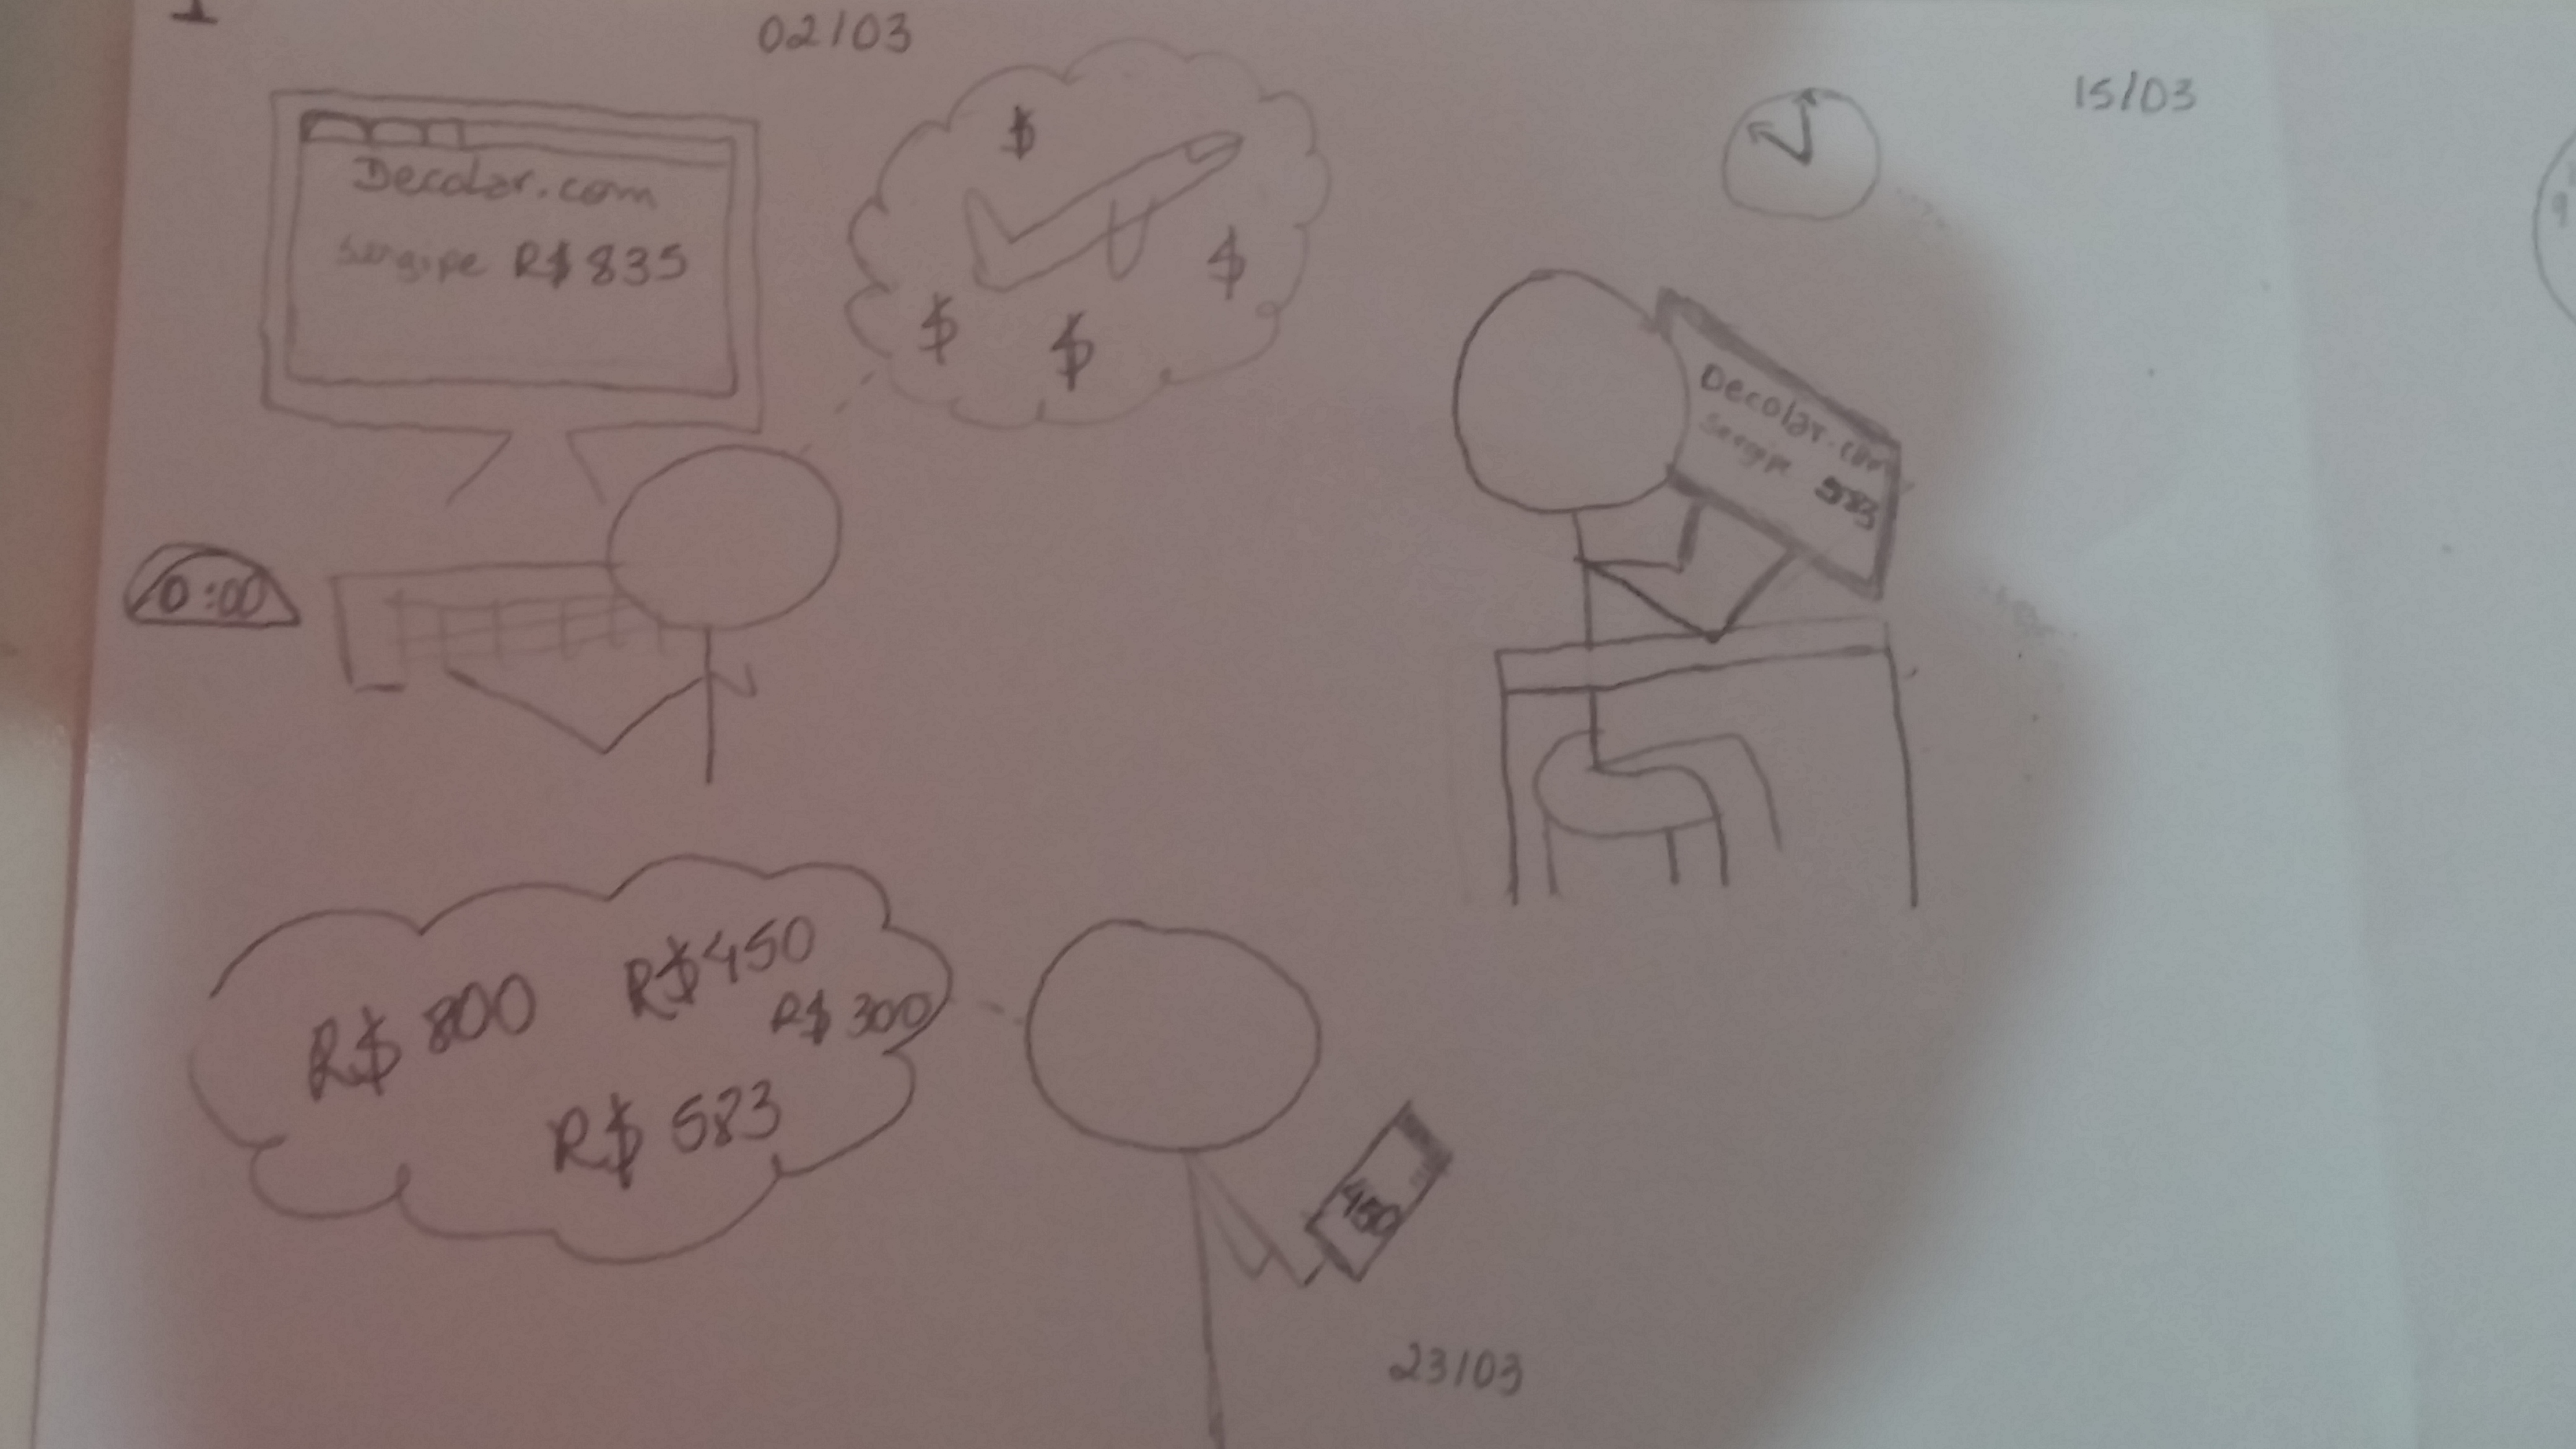 1
02/03
Decolar.com
Sergipe R$ 835
$
$
$
$
0:00
15/03
Decolar.com
Sergipe 583
R$ 800
R$ 450
R$ 300
R$ 583
23/03